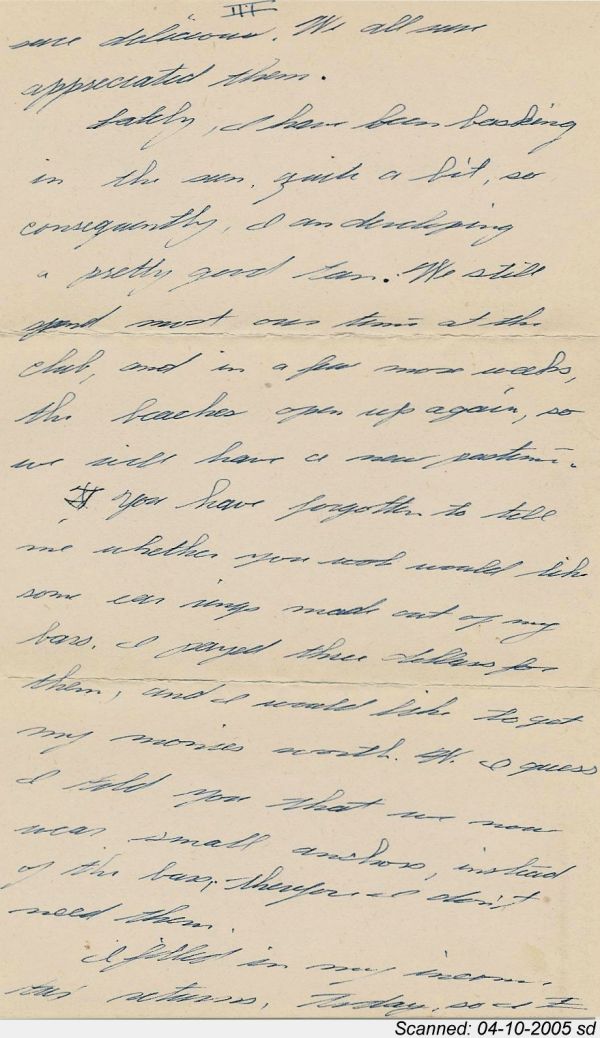 III
were delicious. We all sure
appreciated them.
Lately, I have been basking
in the sun, quite a bit, so
consequently, I am developing
a pretty good tan. We still
spend most our time at the
club, and in a few more weeks,
the beaches open up again, so
we will have a new pastime.
You have forgotten to tell
me whether you would like
some ear rings made out of my
bars. I payed three dollars for
them, and I would like to get
my monies worth. I guess
I told you that we now
wear small anchors, instead
of the bars, therefore I don't
need them.
I filled in my income
tax returns, today, so I
Scanned: 04-10-2005 sd